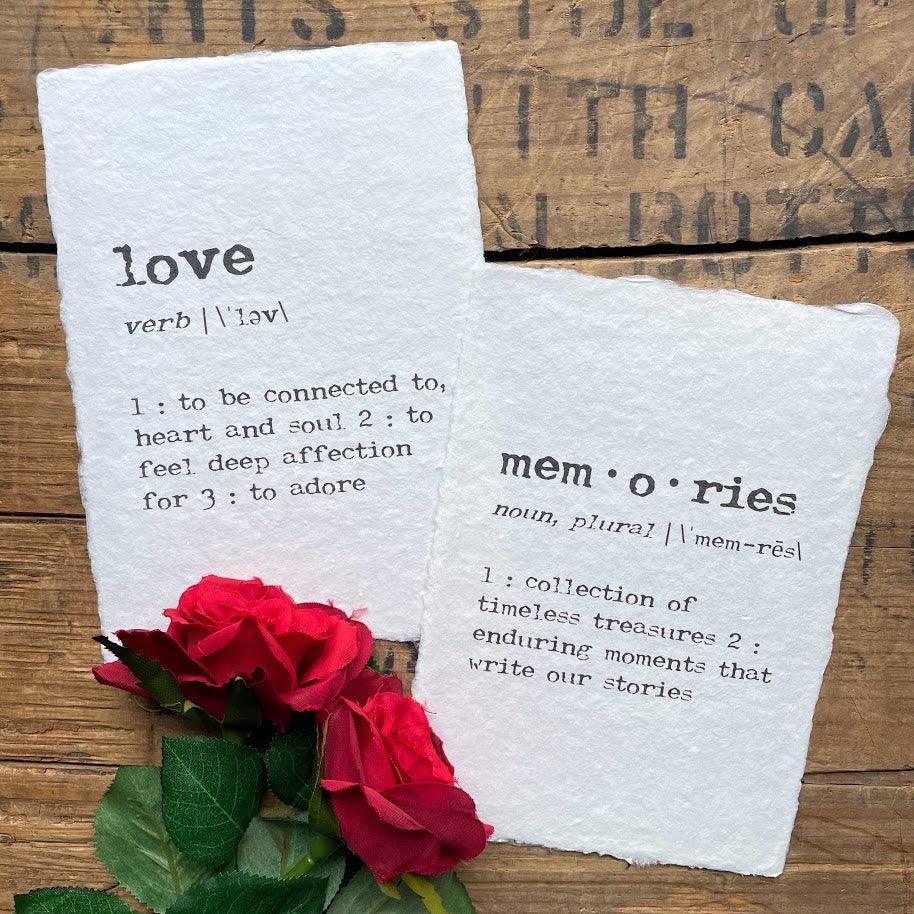 WITH CA
love
verb |\ˈləv\
1 : to be connected to,
heart and soul 2 : to
feel deep affection
for 3 : to adore
mem·o·ries
noun, plural |\ˈmem-rēs\
1 : collection of
timeless treasures 2 :
enduring moments that
write our stories